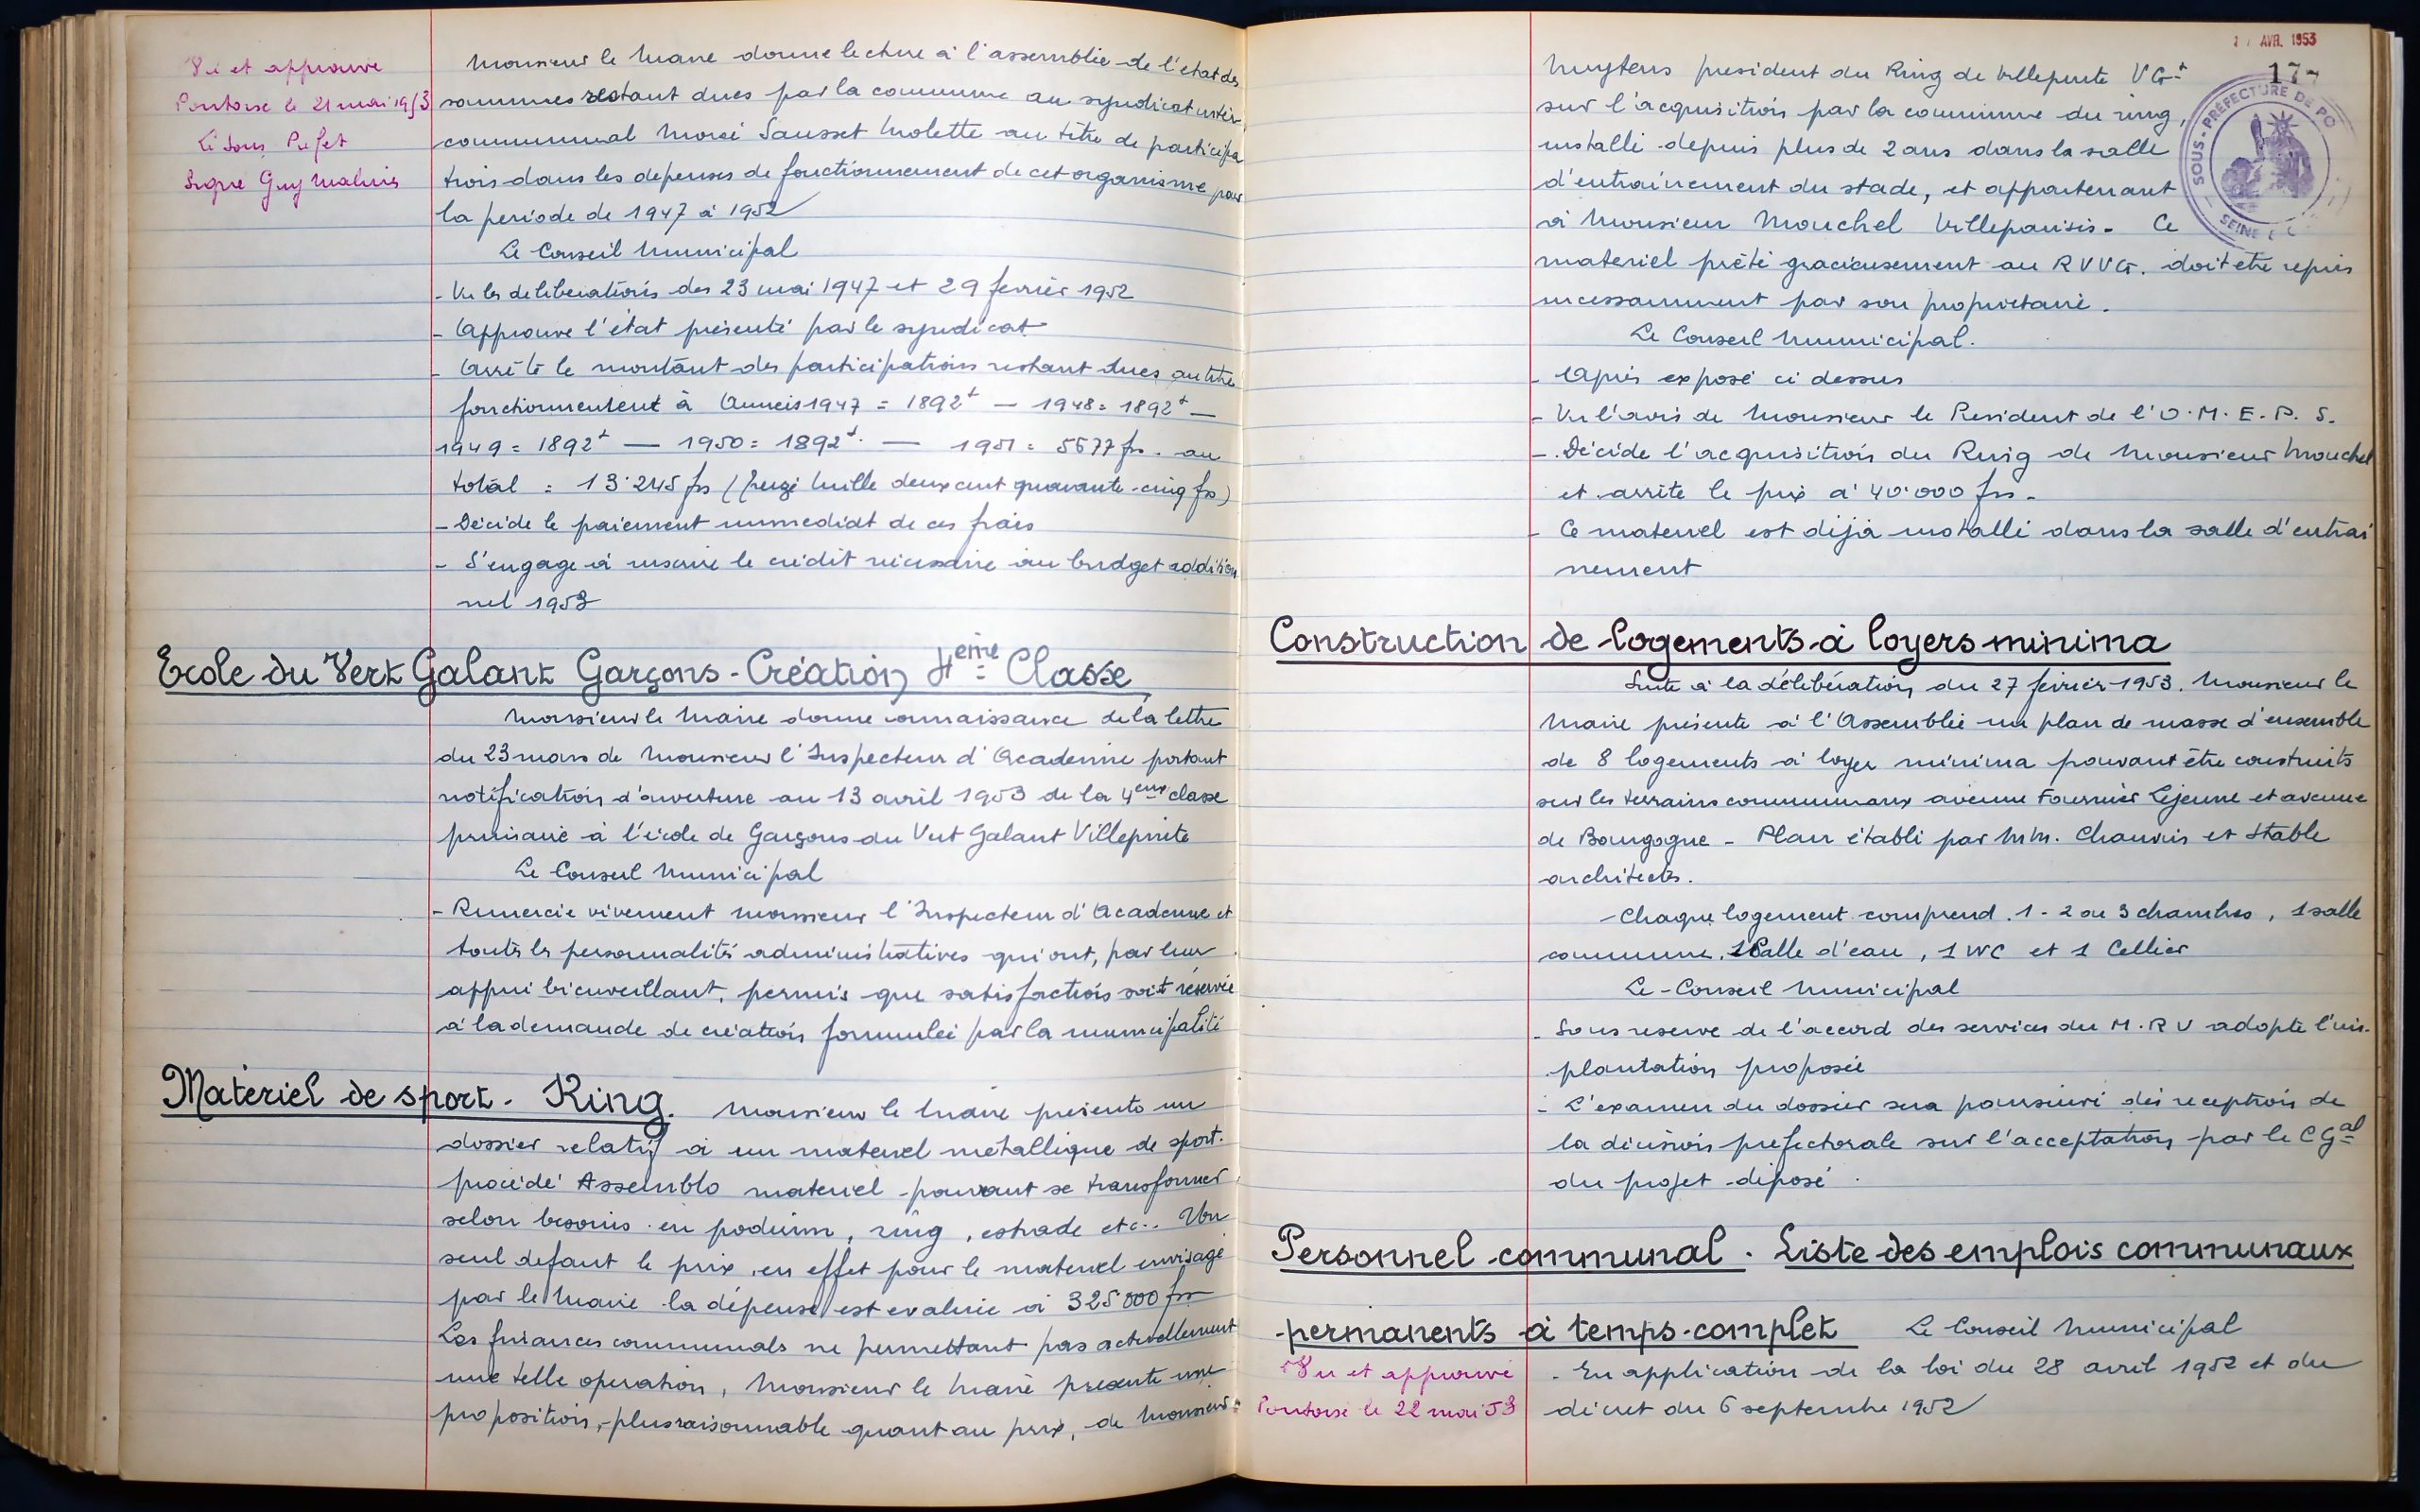 Vu et approuvé
Pontoise le 21 mai 1953
Le Sous Prefet
Signé Guy Malines
Monsieur le Maire donne lecture à l'assemblée de l'état des
sommes restant dues par la commune au syndicat inter
communal Morée Sausset Molette au titre de participa
tion dans les depenses de fonctionnement de cet organisme pour
la periode de 1947 à 1952
Le Conseil Municipal
- Vu les deliberations des 23 mai 1947 et 29 fevrier 1952
- Approuve l'état présenté par le syndicat
- Arrête le montant des participations restant dues au titre
fonctionnement à Années 1947 = 1892f — 1948 = 1892f —
1949 = 1892f — 1950 = 1892f. — 1951 = 5677 frs. au
total = 13.245 frs (treize mille deux cent quarante-cinq frs)
- Décide le paiement immediat de ces frais
- S'engage à inscrire le crédit nécessaire au budget addition
nel 1953
Ecole du Vert Galant Garçons - Création 4ème Classe
Monsieur le Maire donne connaissance de la lettre
du 23 mars de Monsieur l'Inspecteur d'Academie portant
notification d'ouverture au 13 avril 1953 de la 4eme classe
primaire à l'école de Garçons du Vert Galant Villepinte
Le Conseil Municipal
- Remercie vivement Monsieur l'Inspecteur d'Academie et
toutes les personnalités administratives qui ont, par leur
appui bienveillant, permis que satisfaction soit réservée
à la demande de création formulée par la municipalité
Materiel de sport - Ring. Monsieur le Maire présente un
dossier relatif à un materiel métallique de sport.
procédé Assemblo materiel pouvant se transformer
selon besoins en podium, ring, estrade etc.. Un
seul defaut le prix, en effet pour le materiel envisagé
par le Maire la dépense est evaluée à 325000 frs
Les finances communales ne permettant pas actuellement
une telle operation, Monsieur le Maire presente une
proposition, plus raisonnable quant au prix, de Monsieur
17 AVR. 1953
174
SOUS-PRÉFECTURE DE PO
SEINE E
Nuytens president du Ring de Villepinte VGt
sur l'acquisition par la commune du ring,
installé depuis plus de 2 ans dans la salle
d'entrainement du stade, et appartenant
à Monsieur Mouchel Villeparisis. Ce
materiel prêté gracieusement au RVVG. doit etre repris
incessamment par son propriétaire.
Le Conseil Municipal.
- Après exposé ci dessus
- Vu l'avis de Monsieur le President de l'O.M.E.P.S.
- Décide l'acquisition du Ring de Monsieur Mouchel
et arrête le prix à 40.000 frs.
- Ce materiel est déjà installé dans la salle d'entrai
nement
Construction de logements à loyers minima
Suite à la délibération du 27 février 1953. Monsieur le
Maire présente à l'Assemblée un plan de masse d'ensemble
de 8 logements à loyer minima pouvant être construits
sur les terrains communaux avenue Fournier Lejeune et avenue
de Bourgogne - Plan établi par MM. Chauvin et Stable
architectes.
- Chaque logement comprend. 1 - 2 ou 3 chambres, 1 salle
commune, 1 Salle d'eau, 1 WC et 1 Cellier
Le Conseil Municipal
- Sous reserve de l'accord des services du M.R U adopte l'im-
plantation proposée
- L'examen du dossier sera poursuivi dès reception de
la décision prefectorale sur l'acceptation par le C Gal
du projet déposé.
Personnel communal. Liste des emplois communaux
permanents à temps complet Le Conseil Municipal
Vu et approuvé
Pontoise le 22 mai 53
- En application de la loi du 28 avril 1952 et du
décret du 6 septembre 1952